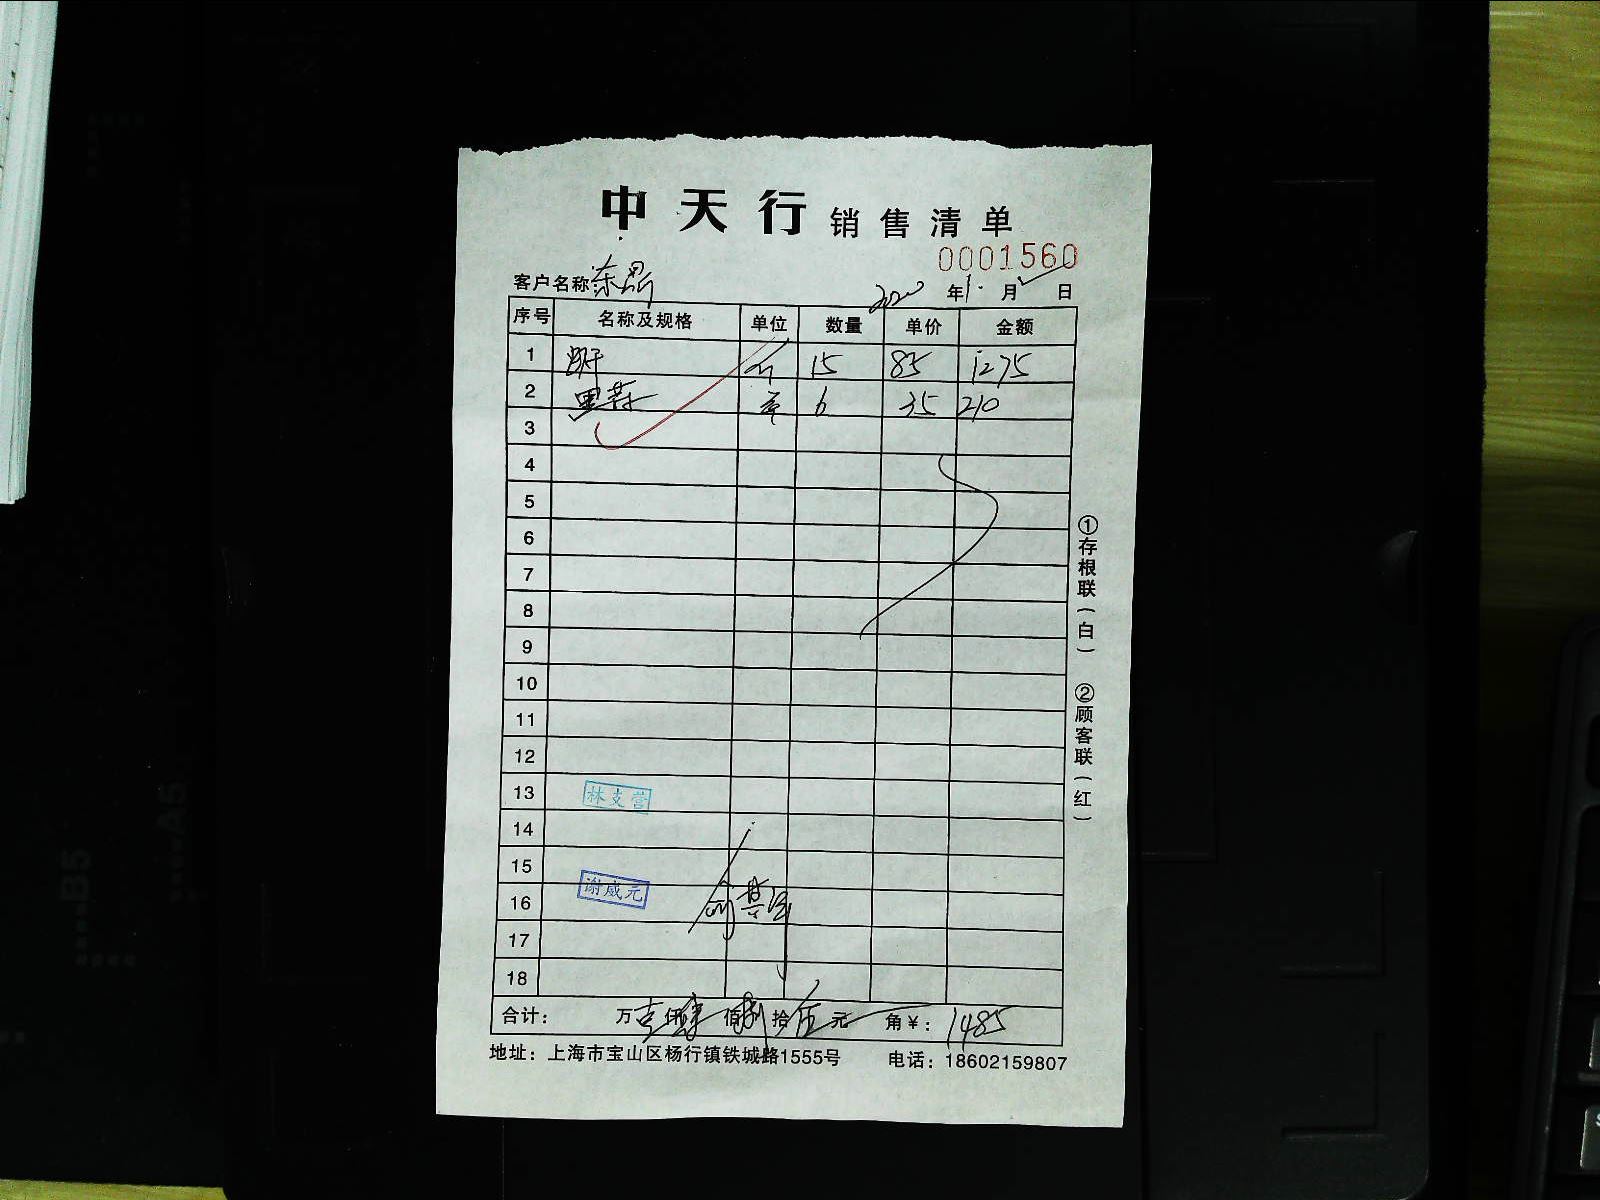 中天行 销售清单
0001560
客户名称: 东
2020 年 1 月 日
序号 名称及规格 单位 数量 单价 金额
1 15 85 1275
2 6 35 210
3
4
5
6
7
8
9
10
11
12
13 林支营
14
15
16 谢威元
17
18
合计: 万 壹 仟 肆 佰 捌 拾 伍 元 角 ¥: 1485
地址: 上海市宝山区杨行镇铁城路1555号 电话: 18602159807
①存根联(白)
②顾客联(红)